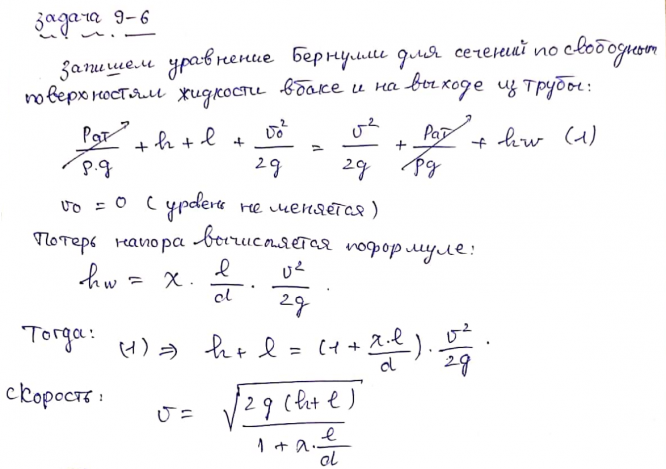 Задача 9-6
Запишем уравнение Бернулли для сечений по свободным
поверхностям жидкости в баке и на выходе из трубы:
Pат/ρ.g + h + l + v₀²/2g = v²/2g + Pат/ρg + hw (1)
v₀ = 0 (уровень не меняется)
Потерь напора вычисляется по формуле:
hw = λ · l/d · v²/2g .
Тогда: (1) ⇒ h + l = (1 + λ.l/d) · v²/2g .
Скорость: v = √(2g(h+l) / (1 + λ. l/d))